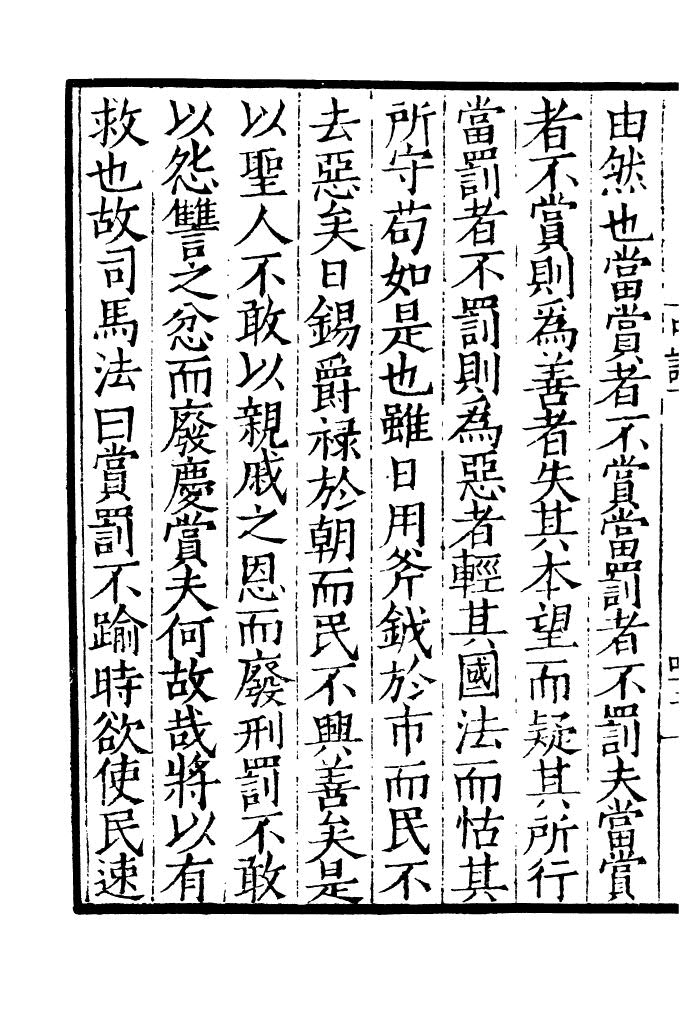 由然也當賞者不賞當罰者不罰夫當賞
者不賞則為善者失其本望而疑其所行
當罰者不罰則為惡者輕其國法而怙其
所守苟如是也雖日用斧鉞於市而民不
去惡矣日錫爵祿於朝而民不興善矣是
以聖人不敢以親戚之恩而廢刑罰不敢
以怨讐之忿而廢慶賞夫何故哉將以有
救也故司馬法曰賞罰不踰時欲使民速